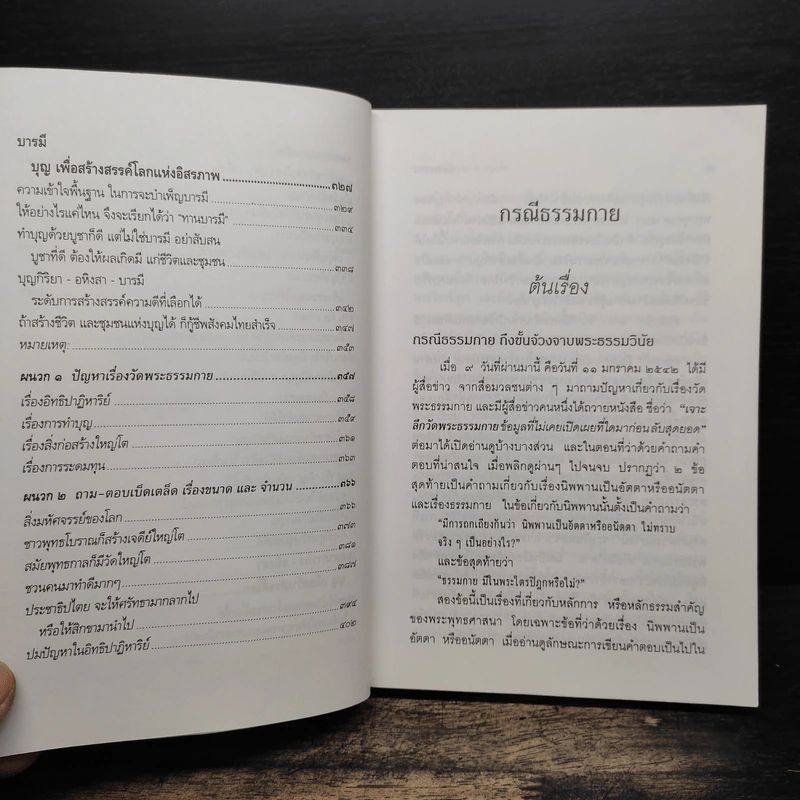 บารมี
บุญ เพื่อสร้างสรรค์โลกแห่งอิสรภาพ ๓๒๗
ความเข้าใจพื้นฐาน ในการจะบำเพ็ญบารมี ๓๒๙
ให้อย่างไรแค่ไหน จึงจะเรียกได้ว่า "ทานบารมี" ๓๓๔
ทำบุญด้วยบูชาก็ดี แต่ไม่ใช่บารมี อย่าสับสน
บูชาที่ดี ต้องให้ผลเกิดมี แก่ชีวิตและชุมชน ๓๓๘
บุญกิริยา - อหิงสา - บารมี
ระดับการสร้างสรรค์ความดีที่เลือกได้ ๓๔๒
ถ้าสร้างชีวิต และชุมชนแห่งบุญได้ ก็กู้ชีพสังคมไทยสำเร็จ ๓๔๗
หมายเหตุ: ๓๕๓
ผนวก ๑ ปัญหาเรื่องวัดพระธรรมกาย ๓๕๗
เรื่องอิทธิปาฏิหาริย์ ๓๕๘
เรื่องการทำบุญ ๓๕๙
เรื่องสิ่งก่อสร้างใหญ่โต ๓๖๑
เรื่องการระดมทุน ๓๖๓
ผนวก ๒ ถาม-ตอบเบ็ดเตล็ด เรื่องขนาด และ จำนวน ๓๖๖
สิ่งมหัศจรรย์ของโลก ๓๖๖
ชาวพุทธโบราณก็สร้างเจดีย์ใหญ่โต ๓๗๓
สมัยพุทธกาลก็มีวัดใหญ่โต ๓๘๑
ชวนคนมาทำดีมากๆ ๓๘๗
ประชาธิปไตย จะให้ศรัทธามากลากไป
หรือให้สิกขามานำไป ๓๙๔
ปมปัญหาในอิทธิปาฏิหาริย์ ๔๐๒
กรณีธรรมกาย
ต้นเรื่อง
กรณีธรรมกาย ถึงขั้นจ้วงจาบพระธรรมวินัย
เมื่อ ๙ วันที่ผ่านมานี้ คือวันที่ ๑๑ มกราคม ๒๕๔๒ ได้มี
ผู้สื่อข่าว จากสื่อมวลชนต่าง ๆ มาถามปัญหาเกี่ยวกับเรื่องวัด
พระธรรมกาย และมีผู้สื่อข่าวคนหนึ่งได้ถวายหนังสือ ชื่อว่า "เจาะ
ลึกวัดพระธรรมกาย ข้อมูลที่ไม่เคยเปิดเผยที่ใดมาก่อน ลับสุดยอด"
ต่อมาได้เปิดอ่านดูบ้างบางส่วน และในตอนที่ว่าด้วยคำถามคำ
ตอบที่น่าสนใจ เมื่อพลิกดูผ่านๆ ไปจนจบ ปรากฏว่า ๒ ข้อ
สุดท้ายเป็นคำถามเกี่ยวกับเรื่องนิพพานเป็นอัตตาหรืออนัตตา
และเรื่องธรรมกาย ในข้อเกี่ยวกับนิพพานนั้นตั้งเป็นคำถามว่า
"มีการถกเถียงกันว่า นิพพานเป็นอัตตาหรืออนัตตา ไม่ทราบ
จริง ๆ เป็นอย่างไร?"
และข้อสุดท้ายว่า
"ธรรมกาย มีในพระไตรปิฎกหรือไม่?"
สองข้อนี้เป็นเรื่องที่เกี่ยวกับหลักการ หรือหลักธรรมสำคัญ
ของพระพุทธศาสนา โดยเฉพาะข้อที่ว่าด้วยเรื่อง นิพพานเป็น
อัตตา หรืออนัตตา เมื่ออ่านดูลักษณะการเขียนคำตอบเป็นไปใน